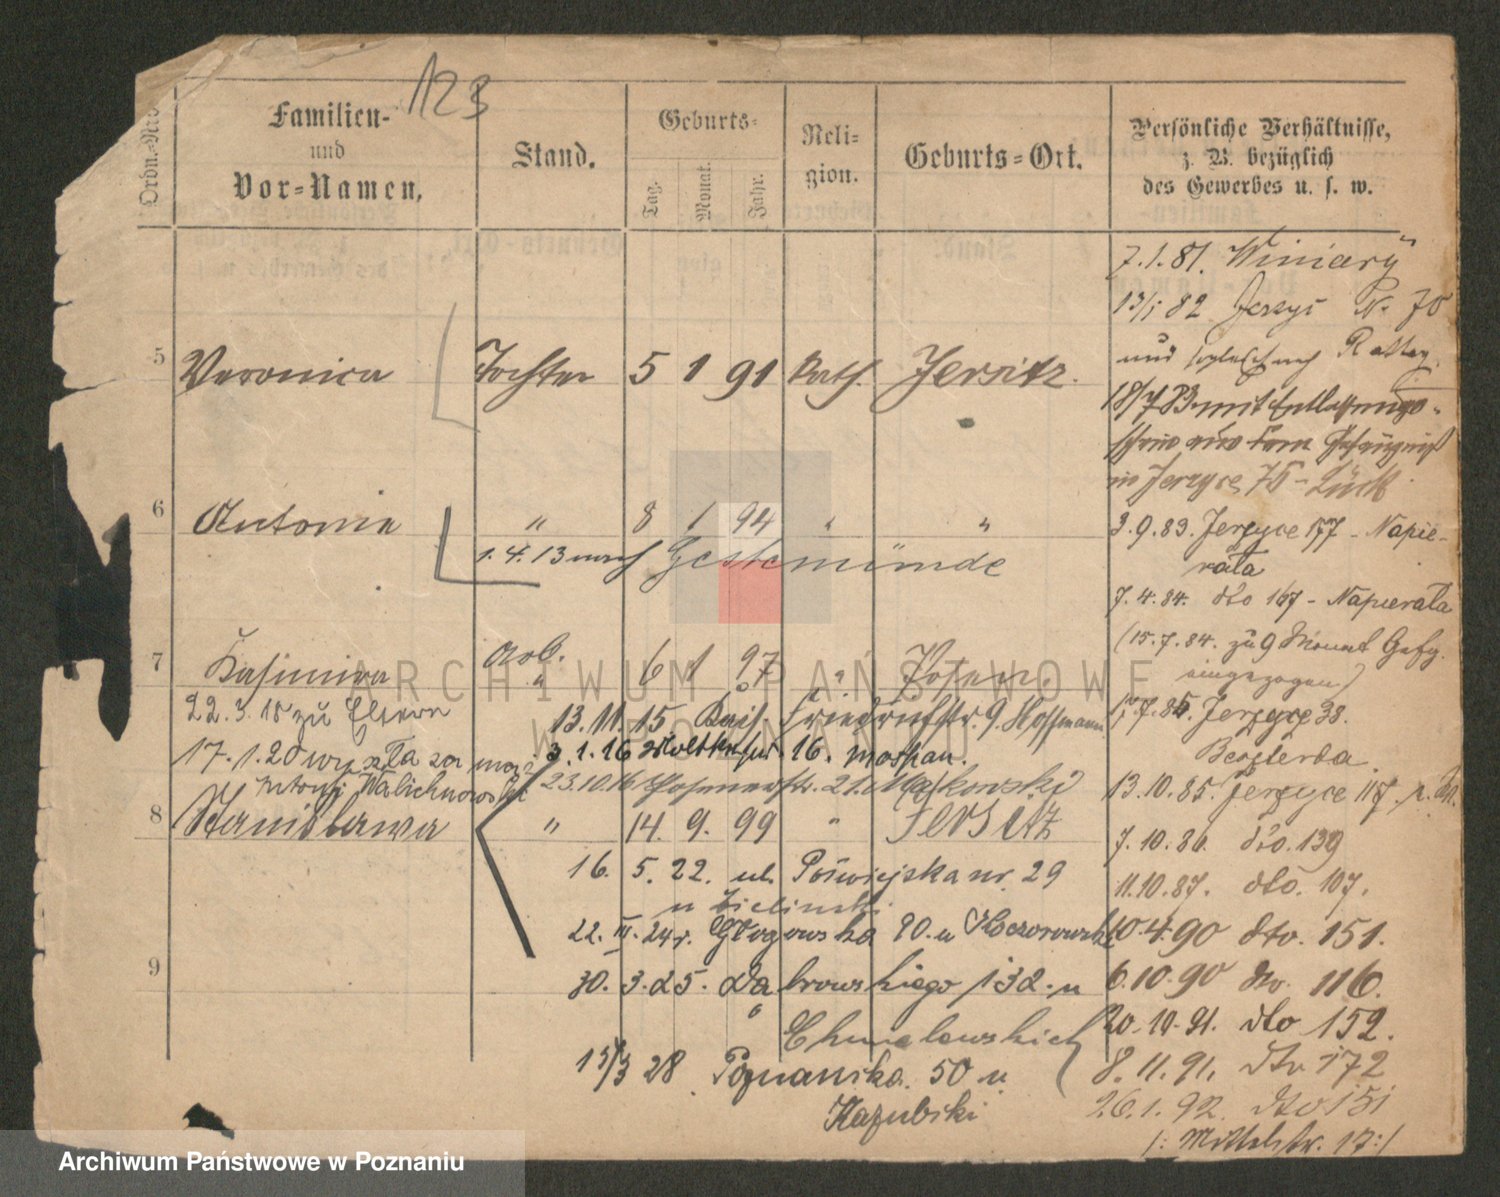 123
Ordn.-Nro
Familien-
und
Vor-Namen.
Stand.
Geburts-
Tag.
Monat.
Jahr.
Reli-
gion.
Geburts-Ort.
Persönliche Verhältnisse,
z. B. bezüglich
des Gewerbes u. s. w.
7.1.81. Winiary
13/1 82 Jerzyc N. 70
5 Veronica Tochter 5 1 91 Kath. Jersitz.
und
18/7 83 mit Entlassungs-
in Jerzyce 75 -
6 Antonie " 8 1 94 " "
1.4.13 nach Geestemünde
3.9.83. Jerzyce 177 - Napie-
rała
7.4.84. dto 167 - Napierała
(15.7.84. zu 9 Monat Gefg.
eingezogen)
7 Kasimira Arb. " 6 1 97 " Posen.
22.3.18 zu Eltern
13.11.15 Kais. Friedrichstr. 9. Hoffmann
17.7.85. Jerzyce 38.
17.1.20 wyszła za mąż
3.1.16 Moltkestr. 16.
23.10.16 21. Makowski
13.10.85. Jerzyce 117.
8 Stanisława " 14. 9. 99 " Jersitz
7.10.86 dto. 139
16. 5. 22. ul. Półwiejska nr. 29
u Zielinski
11.10.87. dto. 107.
22. III. 24 r. Głogowska 90. u
10.4.90 dto. 151.
9
30. 3. 25. Dąbrowskiego 132. u
Chmielewskich
6.10.90 dto. 116.
20.10.91. dto 152.
15/3 28 Poznańska. 50 u
Kazubski
8.11.91. dto 172
26.1.92. dto 151
/: Mittelstr. 17 :/
ARCHIWUM PAŃSTWOWE
W POZNANIU
Archiwum Państwowe w Poznaniu